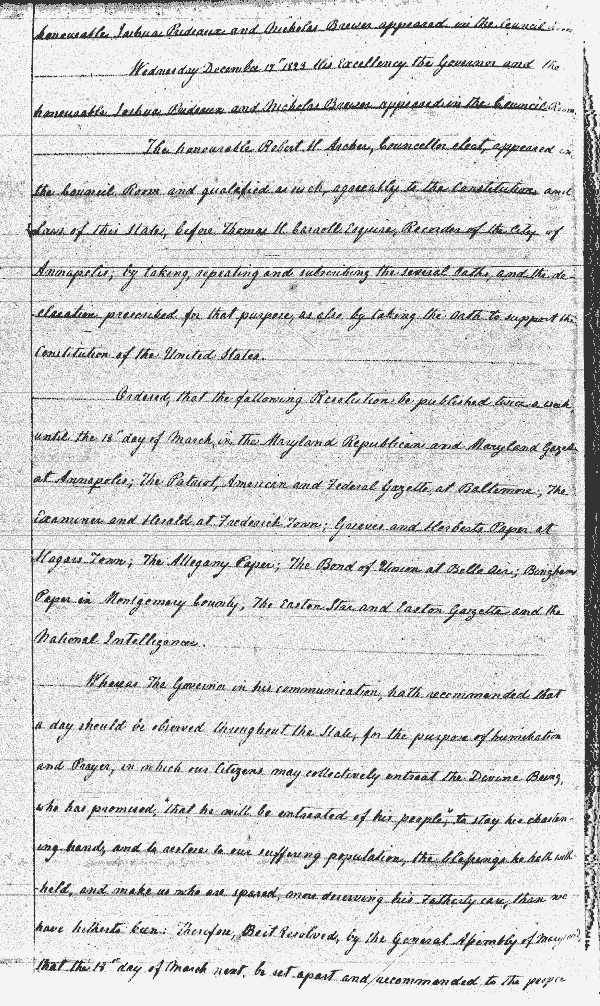 honourable Joshua Prideaux and Nicholas Brewer appeared in the Council Room
Wednesday December 17th 1823 His Excellency the Governor and the
honourable Joshua Prideaux and Nicholas Brewer appeared in the Council Room.
The honourable Robert H. Archer, Councillor elect, appeared in
the Council Room and qualified as such, agreeably to the Constitution and
Laws of this State, before Thomas H. Carroll Esquire, Recorder of the City of
Annapolis; by taking, repeating and subscribing the several Oaths, and the de-
claration prescribed for that purpose, as also by taking the Oath to support the
Constitution of the United States.
Ordered, that the following Resolution be published twice a week,
until the 18th day of March, in the Maryland Republican and Maryland Gazette
at Annapolis; The Patriot, American and Federal Gazette at Baltimore; The
Examiner and Herald at Frederick Town; Grieves and Herberts Paper at
Hagars Town; The Allegany Paper; The Bond of Union at Belle Air; Binghams
Paper in Montgomery County; The Easton Star and Easton Gazette and the
National Intelligencer.
Whereas The Governor in his communication, hath recommended that
a day should be observed throughout the State, for the purpose of humiliation
and Prayer, in which our Citizens may collectively entreat the Divine Being,
who has promised, "that he will be entreated of his people", to stay his chasten-
ing hand, and to restore to our suffering population, the blessings he hath with-
held, and make us who are spared, more deserving his Fatherly care, than we
have hitherto been: Therefore, Be it Resolved, by the General Assembly of Maryland,
that the 18th day of March next, be set apart and recommended to the people